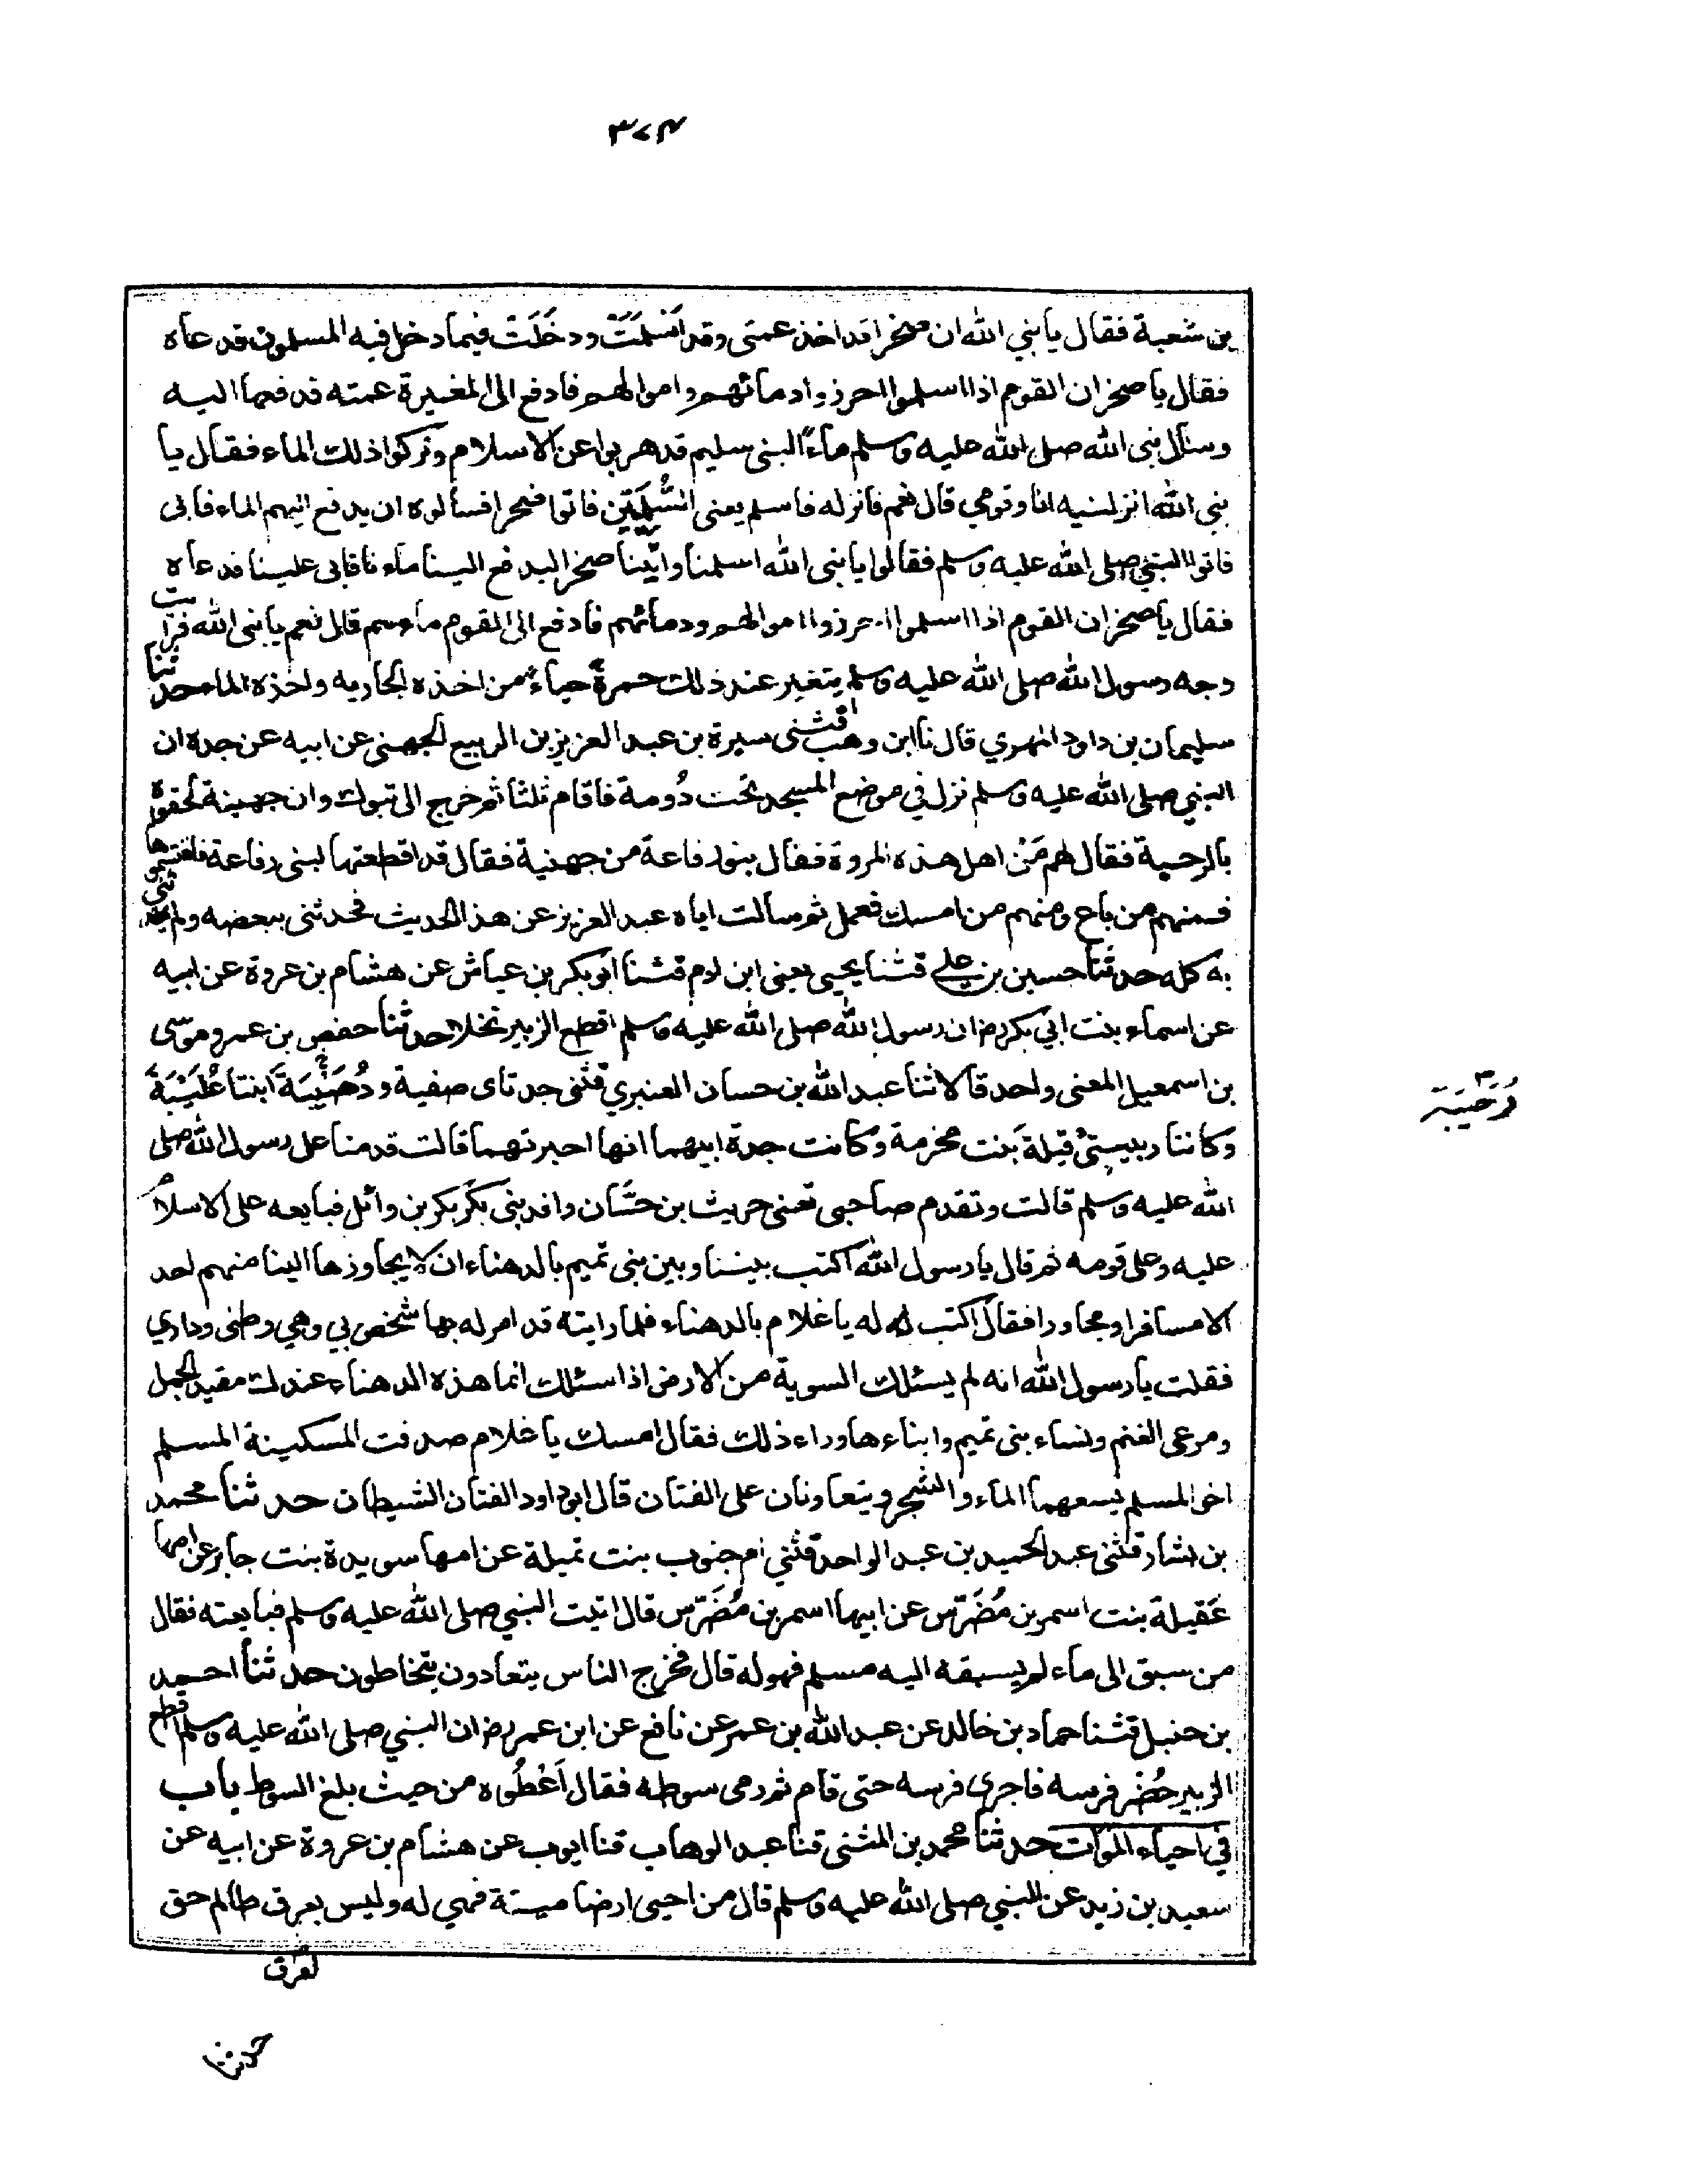 ٣٧٤
بن شعبة فقال يا نبي الله ان صخرا قد اخذ عمتى وقد اَسْلَمَتْ ودخَلَتْ فيما دخل فيه المسلمون قد عاه
فقال يا صخر ان القوم اذا اسلموا احرزوا دمائهم واموالهم فادفع الى المغيرة عمته فدفعها اليه
وسأل نبى الله صلى الله عليه وسلم ماءً لبنى سليم قد هربوا عن الاسلام وتركوا ذلك الماء فقال يا
نبى الله انزلنيه انا وقومي قال نعم فانزله فاسلم يعنى السُّلَمِيّين فاتوا صخرا فسألوه ان يدفع اليهم الماء فابى
فاتوا النبي صلى الله عليه وسلم فقالوا يا نبى الله اسلمنا واتينا صخرا ليدفع الينا ماءنا فابى علينا فدعاه
فقال يا صخر ان القوم اذا اسلموا احرزوا اموالهم ودمائهم فادفع الى القوم ماءهم قال نعم يا نبى الله فرايت
وجه رسول الله صلى الله عليه وسلم يتغير عند ذلك حمرةً حياءً من اخذه الجاريه واخذه الماء حدثنا
سليمان بن داود المهري قال نا ابن وهب قثنى سبرة بن عبد العزيز بن الربيع الجهنى عن ابيه عن جده ان
النبي صلى الله عليه وسلم نزل في موضع المسجد تحت دُومة فاقام ثلثا ثم خرج الى تبوك وان جهينة لحقوه
بالرحبة فقال لهم مَنْ اهل هذه المروة فقال بنو رفاعة من جهنية فقال قد اقطعتها لبنى رفاعة فاقتسموها
فمنهم من باع ومنهم من امسك فعمل ثم سالت اباه عبد العزيز عن هذا الحديث فحدثنى ببعضه ولم يحدثنى
به كله حدثنا حسين بن على قثنا يحيى يعنى ابن ادم قثنا ابو بكر بن عياش عن هشام بن عروة عن ابيه
عن اسماء بنت ابي بكر رض ان رسول الله صلى الله عليه وسلم اقطع الزبير نخلا حدثنا حفص بن عمر وموسى
بن اسمعيل المعنى واحد قالا ثنا عبد الله بن حسان العنبري قثنى جدتاى صفية ودُحَيْبَة ابنتا عُلَيْبَةَ
وكانتا ربيبتىْ قيلةَ بنت مخرمة وكانت جدة ابيهما انها اخبرتهما قالت قدمنا على رسول الله صلى
الله عليه وسلم قالت وتقدم صاحبى تعنى حريث بن حسَّان وافد بنى بكر بكر بن وائل فبايعه على الاسلام
عليه وعلى قومه ثم قال يا رسول الله اكتب بيننا وبين بنى تميم بالدهناء ان لا يجاوزها الينا منهم احد
الا مسافر او مجاور فقال اكتب له يا غلام بالدهناء فلما رايته قد امر له بها شخص بي وهي وطنى وداري
فقلت يا رسول الله انه لم يسئلك السوية من الارض اذا سئلك انما هذه الدهناء عندك مقيد الجمل
ومرعى الغنم ونساء بنى تميم وابناءها وراء ذلك فقال امسك يا غلام صدقت المسكينة المسلم
اخو المسلم يسعهما الماء والشجر ويتعاونان على الفتان قال ابو داود الفتان الشيطان حدثنا محمد
بن بشار قثنى عبد الحميد بن عبد الواحد قثني ام جنوب بنت نميلة عن امها سويدة بنت جابر عن امها
عَقيلة بنت اسمر بن مُضَرّس عن ابيها اسمر بن مُضَرّس قال اتيت النبي صلى الله عليه وسلم فبايعته فقال
من سبق الى ماء لم يسبقه اليه مسلم فهو له قال فخرج الناس يتعادون يتخاطون حدثنا احمد
بن حنبل قثنا حماد بن خالد عن عبد الله بن عمر عن نافع عن ابن عمر رض ان النبي صلى الله عليه وسلم اقطع
الزبير حُضْر فرسه فاجرى فرسه حتى قام ثم رمى سوطه فقال اَعْطُوه من حيث بلغ السوط باب
في احياء الموات حدثنا محمد بن المثنى قثنا عبد الوهاب قنا ايوب عن هشام بن عروة عن ابيه عن
سعيد بن زيد عن النبي صلى الله عليه وسلم قال من احيى ارضا ميتة فهي له وليس بعرق ظالم حق
لعرق
حدثنا